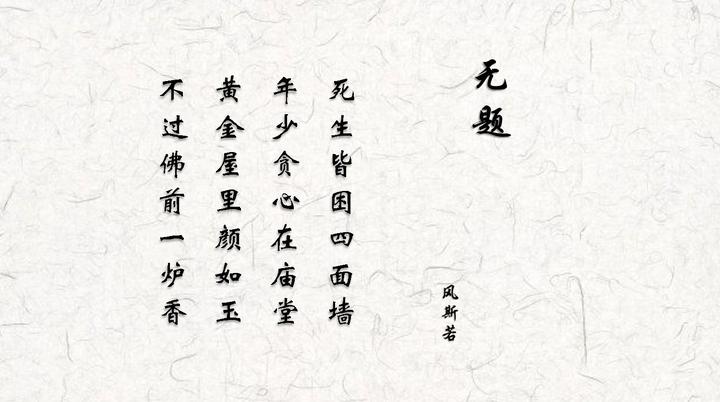 无题
风斯若
死生皆困四面墙
年少贪心在庙堂
黄金屋里颜如玉
不过佛前一炉香